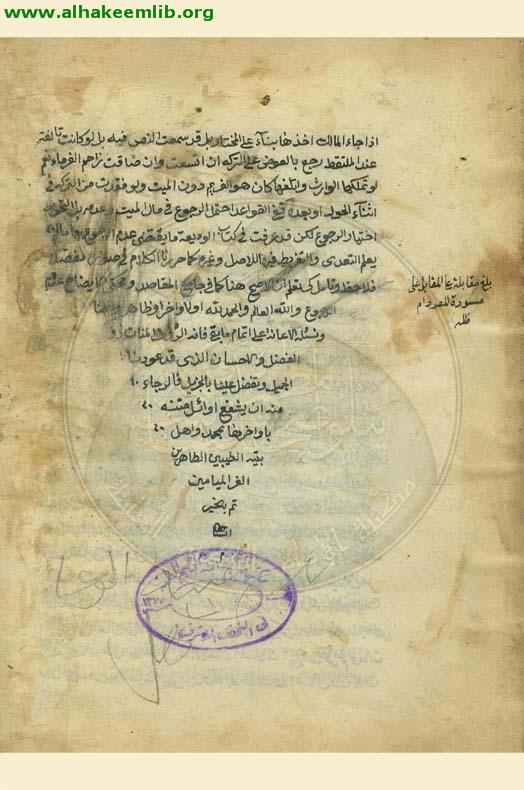 www.alhakeemlib.org
اذا جاء المالك اخذها بناء على المختار بل قد سمعت النص فيه بل لو كانت تالفة
عند الملتقط رجع بالعوض على التركة ان اتسعت وان ضاقت زاحم الغرماء نعم
لو تملكها الوارث واتلفها كان هو الغريم دون الميت ولو فقدت من التركة في
اثناء الحول او بعده ففي القواعد احتمل الرجوع في مال الميت وعدمه بل
اختيار الرجوع لكن قد عرفت في كتاب الوديعة ما يقتضي عدم الرجوع ما لم
يعلم التعدي والتفريط فيها للاصل وغيره كما حررنا الكلام في
فلاحظ وتامل كي تعلم ان الاصح هنا كما في جامع المقاصد
الرجوع والله العالم والحمد لله اولا واخرا وظاهرا وباطنا
ونسئله الاعانة على اتمام ما بقي فانه الرؤف المنان ذو
الفضل والاحسان الذي قد عودنا
الجميل وتفضل علينا بالجزيل فالرجاء
منه ان يشفع اوائل مننه
باواخرها بمحمد واهل
بيته الطيبين الطاهرين
الغر الميامين
تم بخير
بلغ مقابلة على
مسودة المصر دام
ظله
١٣٧٧
في النجف الاشرف